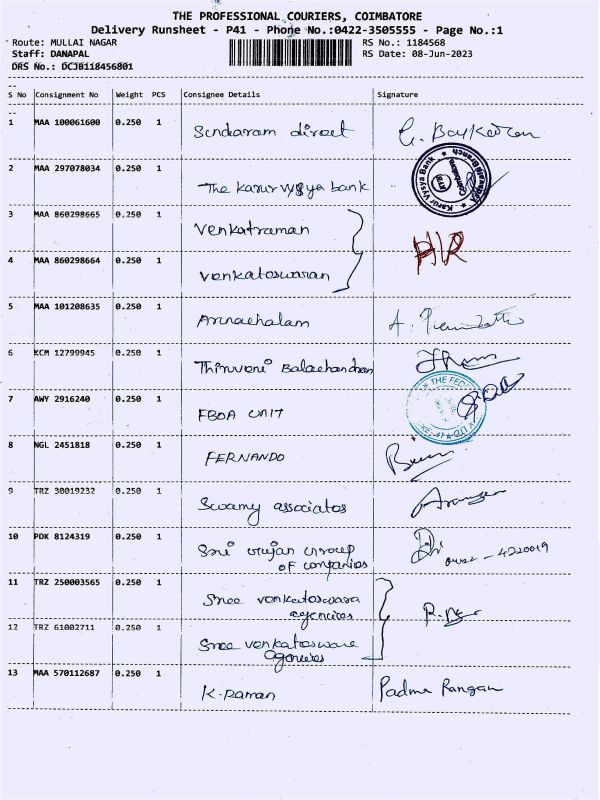 THE PROFESSIONAL COURIERS, COIMBATORE
Delivery Runsheet - P41 - Phone No.:0422-3505555 - Page No.:1
Route: MULLAI NAGAR RS No.: 1184568
Staff: DANAPAL RS Date: 08-Jun-2023
DRS No.: DCJB118456801
S No Consignment No Weight PCS Consignee Details Signature
1 MAA 100061600 0.250 1 Sundaram direct
2 MAA 297078034 0.250 1 The Karur vysya bank
Karur Vysya Bank
3 MAA 860298665 0.250 1 Venkatraman
4 MAA 860298664 0.250 1 Venkateswaran
5 MAA 101208635 0.250 1 Arunachalam
6 KCM 12799945 0.250 1 Thiruveni Balachandran
THE FED
7 AWY 2916240 0.250 1 FBOA UNIT
8 NGL 2451818 0.250 1 FERNANDO
9 TRZ 30019232 0.250 1 Swamy associates
10 PDK 8124319 0.250 1 Sri Gujan Group
of companies
11 TRZ 250003565 0.250 1 Sree venkateswara
agencies
12 TRZ 61002711 0.250 1 Sree venkateswara
Agencies
13 MAA 570112687 0.250 1 K. Raman Padma Rangan